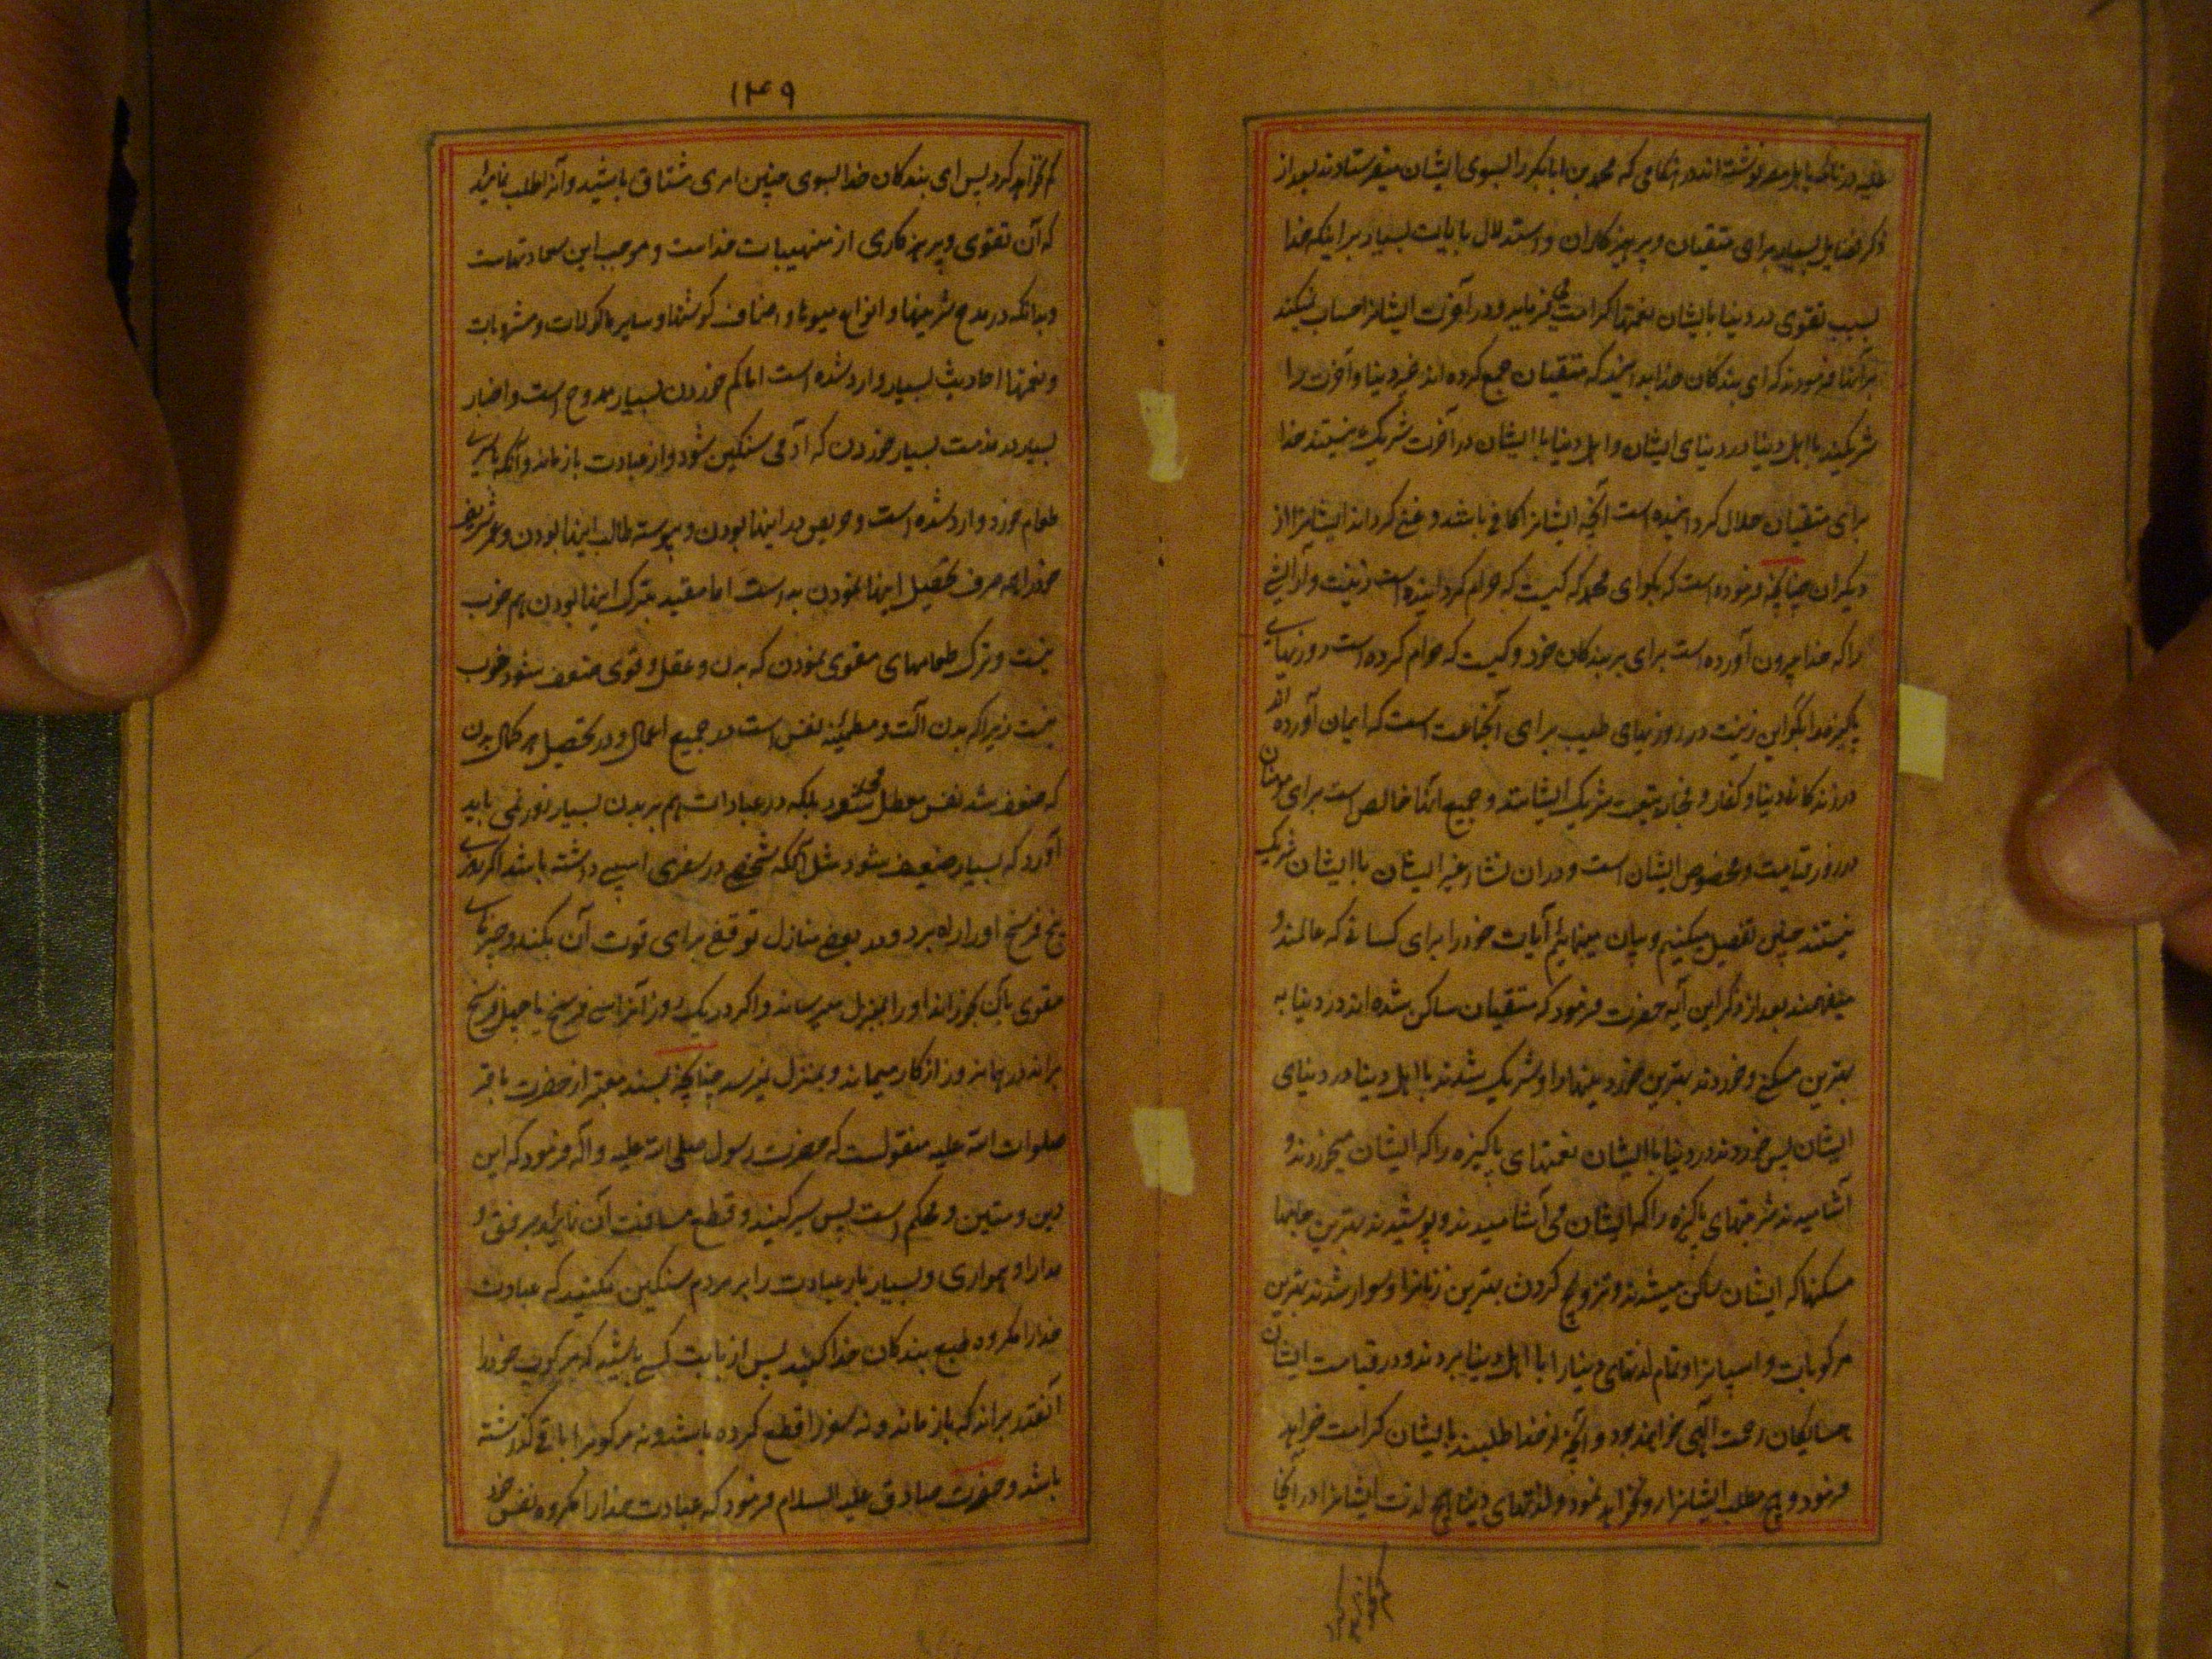 علیه در نامه که باهل مصر نوشته‌اند در هنگامی که محمد بن ابابکر را بسوی ایشان میفرستادند بعد از
ذکر فضایل بسیار برای متقیان و پرهیزکاران و استدلال بایات بسیار بر اینکه خدا
بسبب تقوی در دنیا بایشان نعمتها کرامت میفرماید و در آخرت ایشانرا حساب نمیکند
بر آنها فرمودند که ای بندکان خدا بدانید که متقیان جمع کرده‌اند خیر دنیا و آخرت را
شریکند با اهل دنیا در دنیای ایشان و اهل دنیا با ایشان در آخرت شریک نیستند خدا
برای متقیان حلال کردانیده است آنچه ایشانرا کافی باشد و غنی کرداند ایشانرا از
دیکران چنانچه فرموده است که بکو ای محمد که کیست که حرام کردانیده است زینت و آرایشی
را که خدا بیرون آورده است برای بندکان خود و کیست که حرام کرده است روزیهای
پاکیزه را بکو این زینت و روزیهای طیب برای آنجماعت است که ایمان آورده اند
در زندکانی دنیا و کفار و فجار بتبعیت شریک ایشانند و جمیع آنها خالص است برای مومنان
در روز قیامت و مخصوص ایشان است و در ان نشاء غیر ایشان با ایشان شریک
نیستند چنین تفصیل میکنیم و بیان مینمائیم آیات خود را برای کسانی که عالمند و
میفهمند بعد از ذکر این آیه حضرت فرمود که متقیان ساکن شده‌اند در دنیا به
بهترین مسکنی و خوردند بهترین خوردنیها را و شریک شدند با اهل دنیا در دنیای
ایشان پس خوردند در دنیا با ایشان نعمتهای پاکیزه را که ایشان میخوردند و
آشامیدند شربتهای پاکیزه را که ایشان می آشامیدند و پوشیدند بهترین جامها
مسکنها که ایشان ساکن میشدند و تزویج کردند بهترین زنانرا و سوار شدند بهترین
مرکوبات و اسپانرا و تمام لذتهای دنیا را با اهل دنیا بردند و در قیامت ایشان
همسایکان رحمت الهی خواهند بود و آنچه از خدا طلبند بایشان کرامت خواهد
فرمود و هیچ مطلب ایشانرا رد نخواهد نمود و لذتهای دنیا هیچ لذت ایشانرا در آنجا
کم نخواهد کرد
۱۴۹
کم نخواهد کرد پس ای بندکان خدا بسوی چنین امری مشتاق باشید و آنرا طلب نمائید
که آن تقوی و پرهیزکاری از منهیات خداست و موجب این سعادتهاست
و بدانکه در مدح شیرینیها و انواع میوها و اصناف کوشتها و سایر ماکولات و مشروبات
و نعمتها احادیث بسیار وارد شده است اما کم خوردن بسیار ممدوح است و اخبار
بسیار در مذمت بسیار خوردن که آدمی سنکین شود و از عبادت باز ماند و آنکه با سیری
طعام خورد وارد شده است و حریص در اینها بودن و پیوسته طالب اینها بودن و عمر شریف
خود را همه صرف تحصیل اینها نمودن بد است اما مقید بترک اینها بودن هم خوب
نیست و ترک طعامهای مقوی نمودن که بدن و عقل و قوی ضعیف شود خوب
نیست زیرا که بدن آلت و مطیه نفس است در جمیع اعمال و در تحصیل هر کمال بدن
که ضعیف شد نفس معطل میشود بلکه در عبادات هم بر بدن بسیار زور نمی باید
آورد که بسیار ضعیف شود مثل آنکه شخصی در سفری اسپی داشته باشد اکر روزی
پنج فرسخ او را راه برد و در بعضی منازل توقفی برای قوت آن بکند و چیزهای
مقوی بآن بخوراند او را بمنزل میرساند و اکر در یک روز آنرا سی فرسخ یا چهل فرسخ
براند در همانروز از کار میماند و بمنزل نمیرسد چنانچه بسند معتبر از حضرت باقر
صلوات الله علیه منقولست که حضرت رسول صلی الله علیه و آله فرمود که این
دین متین و محکم است پس سیر کنید و قطع مسافت آن نمائید برفق و
مدارا و همواری و بسیار بار عبادت را بر مردم سنکین مکنید که عبادت
خدا را مکروه طبع بندکان خدا کنید پس از بابت کسی باشید که مرکوب خود را
آنقدر براند که باز ماند و نه سفر را قطع کرده باشد و نه مرکوبرا باقی کذاشته
باشد و حضرت صادق علیه السلام فرمود که عبادت خدا را مکروه نفس خود